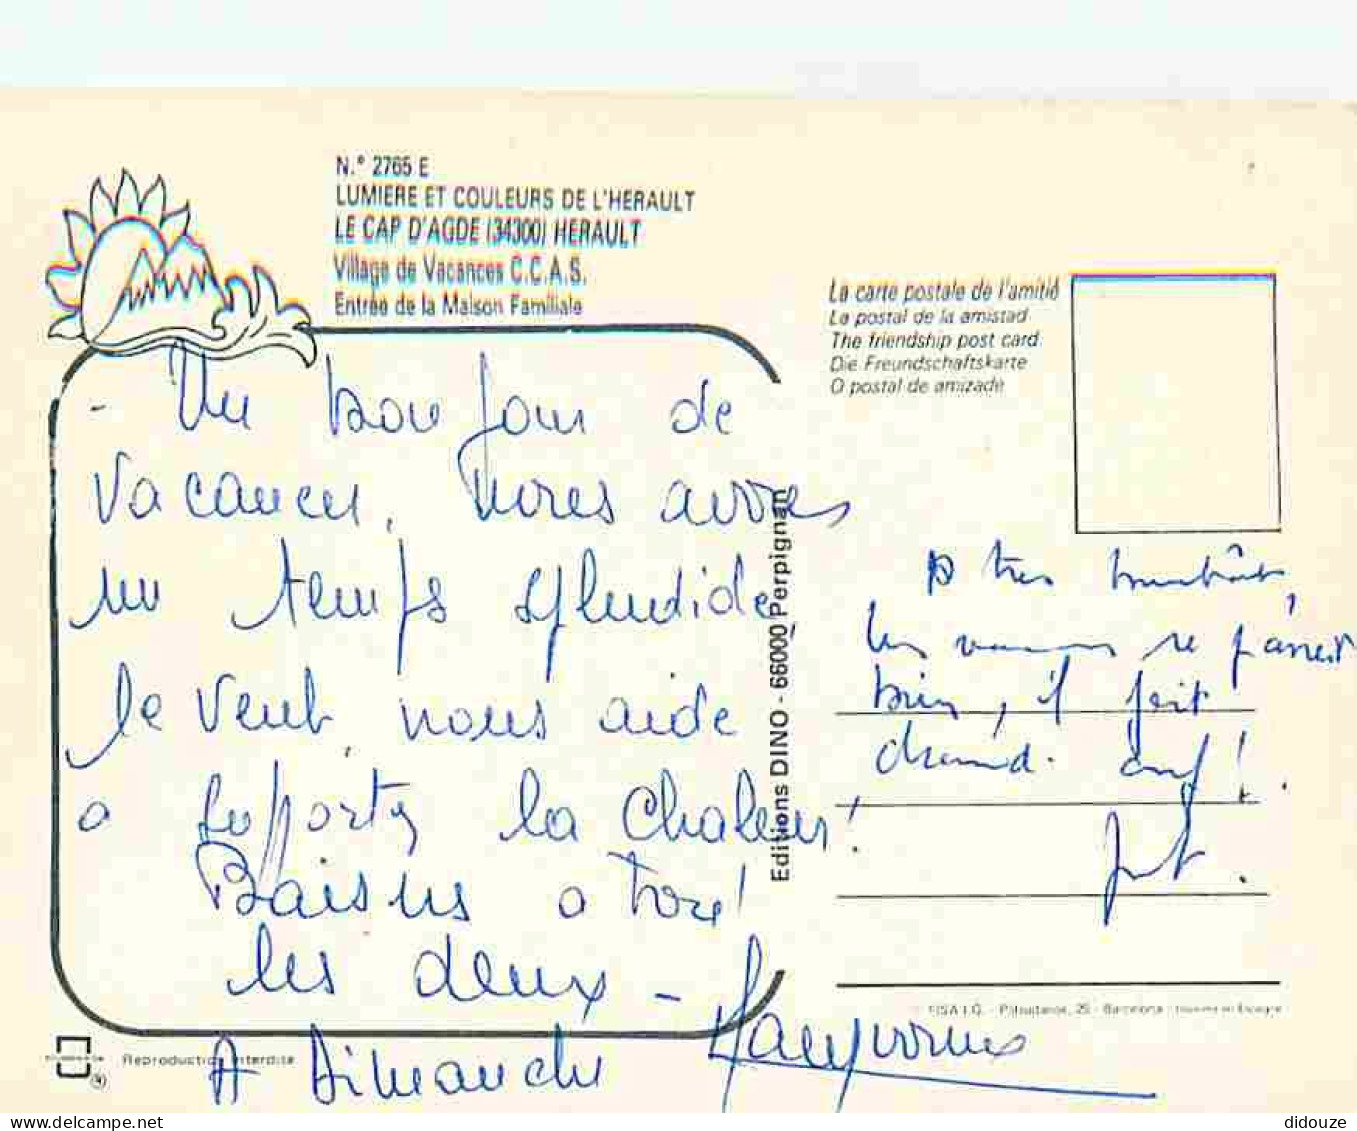 N.° 2765 E
LUMIERE ET COULEURS DE L'HERAULT
LE CAP D'AGDE (34300) HERAULT
Village de Vacances C.C.A.S.
Entrée de la Maison Familiale
La carte postale de l'amitié
La postal de la amistad
The friendship post card
Die Freundschaftskarte
O postal de amizade
- Un bon jour de
vacances, nous avons
un temps splendide,
le vent nous aide
a suporter la chaleur!
Baisers a tous!
les deux -
A Dimanche
Editions DINO - 66000 Perpignan
a tres bientôt,
les vacances se passent
bien, il fait
chaud. ouf!
FISA I.G. - Barcelona
Reproduction interdite
didouze